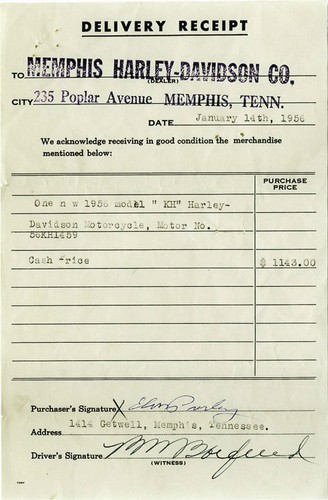 DELIVERY RECEIPT
TO MEMPHIS HARLEY-DAVIDSON CO.
(DEALER)
CITY 235 Poplar Avenue MEMPHIS, TENN.
DATE January 14th, 1956
We acknowledge receiving in good condition the merchandise
mentioned below:
PURCHASE
PRICE
One n w 1956 model " KH" Harley-
Davidson Motorcycle, Motor No.
56KH1459
Cash Price $ 1143.00
Purchaser's Signature X Elvis Presley
Address 1414 Getwell, Memphis, Tennessee.
Driver's Signature
(WITNESS)